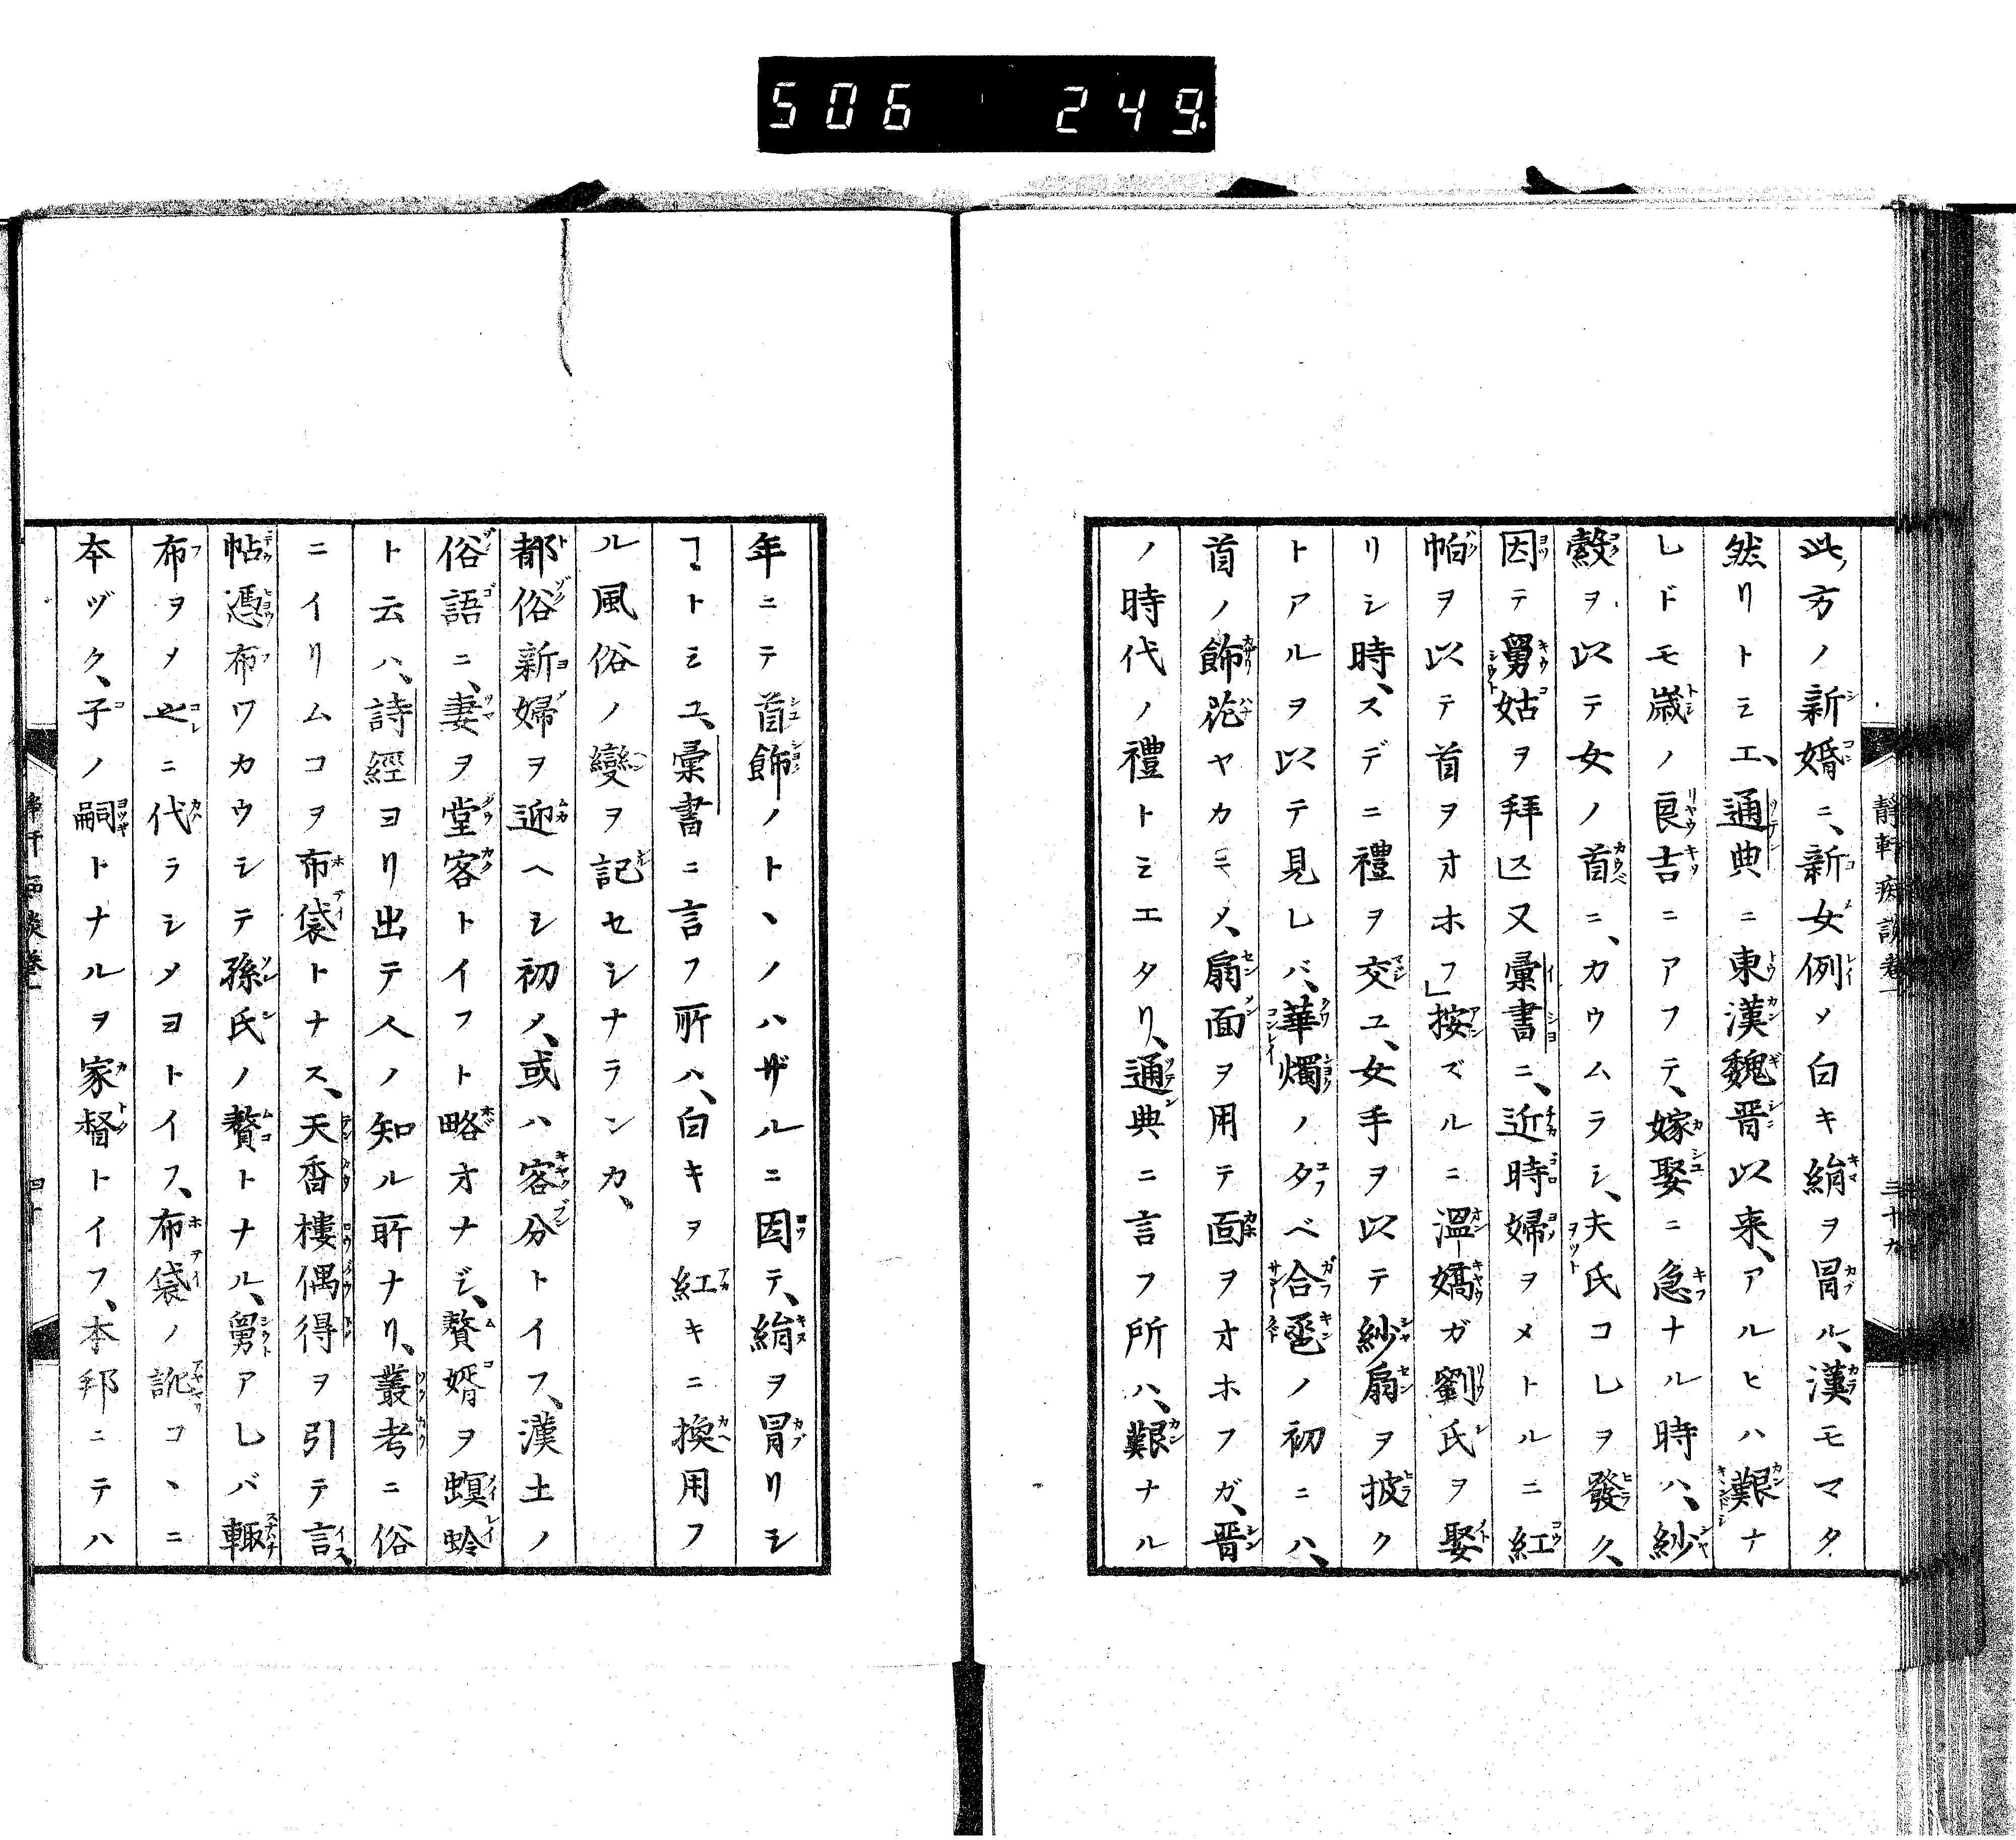 506 249
此方ノ新婚ニ、新女例メ白キ絹ヲ冒ル、漢モマタ
然リトミエ、通典ニ東漢魏晋以来、アルヒハ艱ナ
レドモ歳ノ良吉ニアフテ、嫁娶ニ急ナル時ハ、紗
縠ヲ以テ女ノ首ニ、カウムラシ、夫氏コレヲ發ク、
因テ舅姑ヲ拜ス」又彙書ニ、近時婦ヲメトルニ紅
帕ヲ以テ首ヲオホフ」按ズルニ溫嬌ガ劉氏ヲ娶
リシ時、スデニ禮ヲ交ユ、女手ヲ以テ紗扇ヲ披ク
トアルヲ以テ見レバ、華燭ノタベ合巹ノ初ニハ、
首ノ飾花ヤカニメ、扇面ヲ用テ面ヲオホフガ、晋
ノ時代ノ禮トミエタリ、通典ニ言フ所ハ、艱ナル
靜軒痴談卷一
三十九
年ニテ首飾ノトヽノハザルニ因テ、絹ヲ冒リシ
ヿトミユ、彙書ニ言フ所ハ、白キヲ紅キニ換用フ
ル風俗ノ變ヲ記セシナランカ、
都俗新婦ヲ迎ヘシ初メ、或ハ客分トイフ、漢土ノ
俗語ニ、妻ヲ堂客トイフト略オナジ、贅婿ヲ螟蛉
ト云ハ、詩經ヨリ出テ人ノ知ル所ナリ、叢考ニ俗
ニイリムコヲ布袋トナス、天香樓偶得ヲ引テ言、
帖憑布ワカウシテ孫氏ノ贅トナル、舅アレバ輙
布ヲメ之ニ代ラシメヨトイフ、布袋ノ訛コヽニ
本ヅク、子ノ嗣トナルヲ家督トイフ、本邦ニテハ
四十